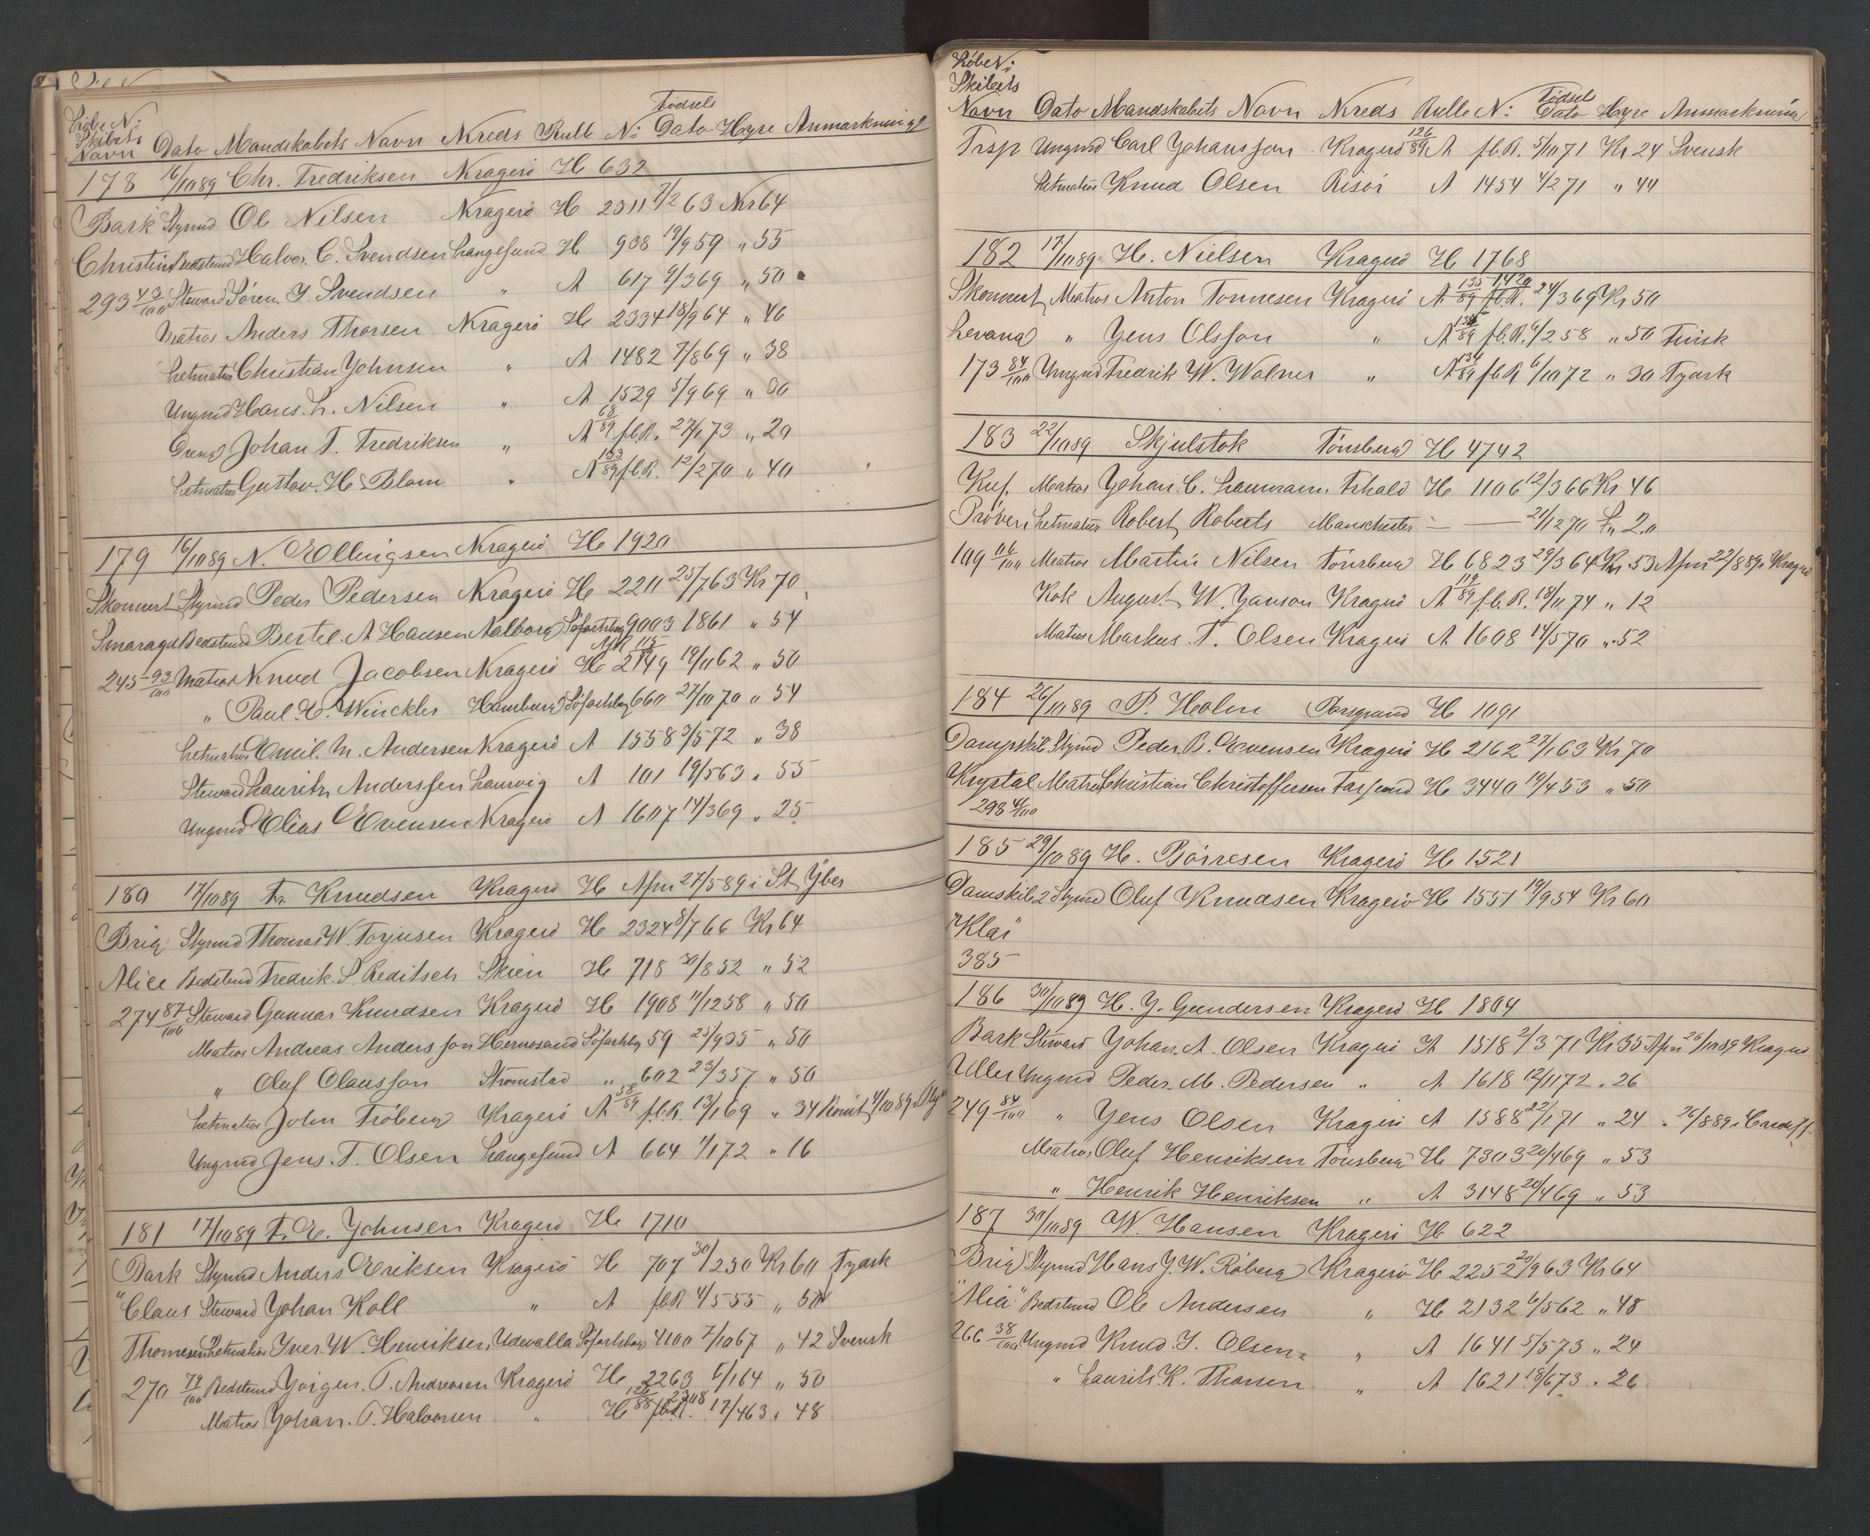 Løbe N:
Skibets Fødsels
Navn Dato Mandskabets Navn Kreds Rulle N: Dato Hyre Anmærkninger
178 16/10 89 Chr. Fredriksen Kragerö H 632
Bark Styrmd Ole Nilsen Kragerö H 2311 7/2 63 Kr 64
Christine Bedstmd Halvor C. Svendsen Langesund H 938 19/9 59 " 55
293 43/100 Steward Søren J. Svendsen " A 617 9/3 69 " 50
Matros Anders Thorsen Kragerö H 2334 18/9 64 " 46
Letmatros Christian Johnsen " A 1482 7/8 69 " 38
Ungmd Hans L. Nilsen " A 1529 5/9 69 " 30
Dreng Johan F. Fredriksen " A 68/89 fl.R. 27/1 73 " 20
Letmatros Gustav H. Blom " A 133/89 fl.R. 12/2 70 " 40
179 16/10 89 N. Ellingsen Kragerö H 1920
Skonnert Styrmd Peder Pedersen Kragerö H 2211 25/7 63 Kr 70
Smaragd Bedstmd Bertel A Hansen Aalborg Søfartsbog 9003 1861 " 54
245 93/100 Matros Knud Jacobsen Kragerö H 2149 19/11 62 " 50
" Paul E. Winckler Hamburg Søfartsbog 660 27/10 70 " 54
Letmatros Emil M. Andersen Kragerö A 1558 3/5 72 " 38
Steward Lauritz Anderssen Laurvig A 101 19/5 63 " 55
Ungmd Elias Evensen Kragerö A 1607 14/3 69 " 25
180 17/10 89 Fr. Knudsen Kragerö H Afm 27/5 89 i St. Ybes
Brig Styrmd Thomas W. Torjusen Kragerö H 2324 8/7 66 Kr 64
Alice Bedstmd Fredrik S. Reditsch Skien H 718 30/8 52 " 52
274 87/100 Steward Gunnar Knudsen Kragerö H 1908 11/12 58 " 50
Matros Andreas Andersson Hernøsand Søfartsbog 59 25/9 35 " 50
" Oluf Olausson Strømstad " 602 23/3 57 " 50
Letmatros John Fröberg Kragerö A 58/89 fl.R. 13/1 69 " 34
Ungmd Jens T. Olsen Langesund A 664 1/1 72 " 16
181 17/10 89 F. E. Johnsen Kragerö H 1710
Bark Styrmd Anders Eriksen Kragerö H 707 30/12 30 Kr 60
"Claus Steward Johan Koll " A fl.R 4/5 55 " 50 Tydsk
Thomesen Letmatros Iver W. Henriksen Udevalla Søfartsbog 4100 7/10 67 " 42 Svensk
270 79/100 Bedstmd Jørgen P. Andreasen Kragerö H 2263 6/1 64 " 50
Matros Johan P. Halvorsen " H 126/88 fl.R. 2308 17/4 63 " 48
Løbe N:
Skibets Fødsels
Navn Dato Mandskabets Navn Kreds Rulle N: Dato Hyre Anmærkning
Trsp Ungmd Carl Johansson Kragerö 126/89 A fl.R. 5/10 71 Kr 24 Svensk
Letmatros Knud Olsen Risör A 1454 4/2 71 " 44
182 17/10 89 H. Nielsen Kragerö H 1768
Skonnert Matros Anton Tonnesen Kragerö A 135/89 1420 fl.R. 24/3 69 Kr 50
Levana " Jens Olsson " A fl.R. 6/2 58 " 50 Finsk
173 84/100 Ungmd Fredrik W. Wolner " A 134/89 fl.R 6/10 72 " 30 Tydsk
183 22/10 89 Skjulstok Tönsberg H 4742
Kuf. Matros Johan C. Laumann Frhald H 1106 12/3 66 Kr 46
Pröven Letmatros Robert Roberts Manchester — — 21/12 70 2.0
109 16/100 Matros Martin Nilsen Tönsberg H 6823 29/3 64 Kr. 53 Afm 22/8 89 Kragerö
Kok August W. Janson Kragerö A 119/89 fl.R. 18/11 74 " 12
Matros Markus T. Olsen Kragerö A 1608 14/5 70 " 52
184 26/10 89 P. Holm Porsgrund H 1091
Dampskib Styrmd Peder B. Evensen Kragerö H 2162 23/1 63 Kr 70
Krystal Matros Christian Christoffersen Farsund H 3440 19/4 53 " 50
298 41/100
185 29/10 89 H. Börresen Kragerö H 1521
Damskib 2 Styrmd Oluf Knudsen Kragerö H 1551 19/9 54 Kr 60
"Klar"
385
186 30/10 89 H. J. Gundersen Kragerö H 1804
Bark Steward Johan A. Olsen Kragerö A 1518 2/3 71 Kr 35 Afm 26/10 89 Kragerö
Uller Ungmd Peder M. Pedersen " A 1618 12/11 72 " 26
249 84/100 " Jens Olsen Kragerö A 1588 22/1 71 " 24 " 26/8 89 i Cardiff
Matros Oluf Henriksen Tönsberg H 7303 20/4 69 " 53
" Henrik Henriksen " A 3148 20/4 69 " 53
187 30/10 89 W. Hansen Kragerö H 622
Brig Styrmd Hans J. W. Röberg Kragerö H 2252 20/9 63 Kr 64
"Alia" Bedstmd Ole Andersen " H 2132 6/5 62 " 48
266 38/100 Ungmd Knud J. Olsen " A 1641 5/5 73 " 24
" Laurits K. Thorsen " A 1621 18/6 73 " 26